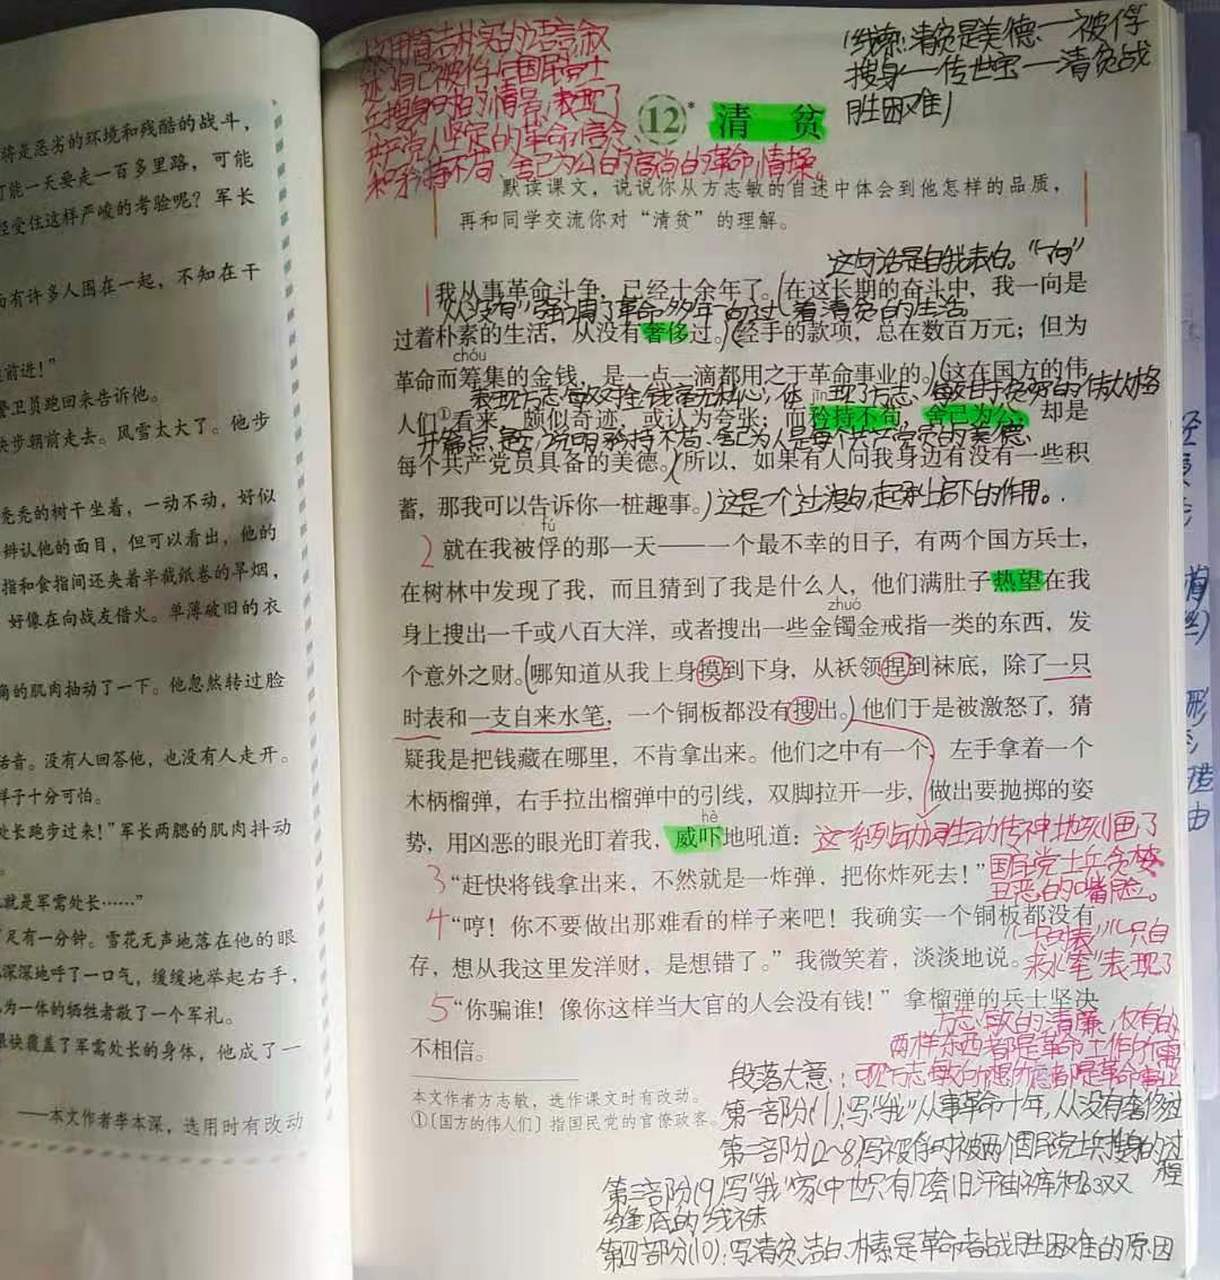 将是恶劣的环境和残酷的战斗，
可能一天要走一百多里路，可能
经受住这样严峻的考验呢？军长
有许多人围在一起，不知在干
前进！”
警卫员跑回来告诉他。
快步朝前走去。风雪太大了。他步
秃秃的树干坐着，一动不动，好似
辨认他的面目，但可以看出，他的
指和食指间还夹着半截纸卷的旱烟，
好像在向战友借火。单薄破旧的衣
角的肌肉抽动了一下。他忽然转过脸
话音。没有人回答他，也没有人走开。
样子十分可怕。
处长跑步过来！”军长两腮的肌肉抖动
就是军需处长……”
足有一分钟。雪花无声地落在他的眼
深深地呼了一口气，缓缓地举起右手，
为一体的牺牲者敬了一个军礼。
很快覆盖了军需处长的身体，他成了一
——本文作者李本深，选用时有改动
用简洁朴实的语言叙
述自己被俘后国民党士
兵搜身时的情景，表现了
共产党人坚定的革命信念
和矜持不苟、舍己为公的高尚的革命情操。
（线索：清贫是美德—被俘
搜身—传世宝—清贫战
胜困难）
12* 清 贫
默读课文，说说你从方志敏的自述中体会到他怎样的品质，
再和同学交流你对“清贫”的理解。
这句话是自我表白。“一向”
1 我从事革命斗争，已经十余年了。（在这长期的奋斗中，我一向是
“从没有”强调了革命多年一向过着清贫的生活。
过着朴素的生活，从没有奢侈过。）（经手的款项，总在数百万元；但为
chóu
革命而筹集的金钱，是一点一滴都用之于革命事业的。）（这在国方的伟
表现方志敏对金钱毫无私心，体现了方志敏甘于清贫的伟大人格
jīn
人们①看来，颇似奇迹，或认为夸张；而矜持不苟，舍己为公，却是
矜持不苟、舍己为人是每个共产党员的美德。
每个共产党员具备的美德。（所以，如果有人问我身边有没有一些积
蓄，那我可以告诉你一桩趣事。）这是一个过渡句，起承上启下的作用。
fú
2 就在我被俘的那一天——一个最不幸的日子，有两个国方兵士，
在树林中发现了我，而且猜到了我是什么人，他们满肚子热望在我
zhuó
身上搜出一千或八百大洋，或者搜出一些金镯金戒指一类的东西，发
个意外之财。（哪知道从我上身摸到下身，从袄领捏到袜底，除了一只
时表和一支自来水笔，一个铜板都没有搜出。）他们于是被激怒了，猜
疑我是把钱藏在哪里，不肯拿出来。他们之中有一个，左手拿着一个
木柄榴弹，右手拉出榴弹中的引线，双脚拉开一步，做出要抛掷的姿
hè
势，用凶恶的眼光盯着我，威吓地吼道：
这一系列动词生动传神地刻画了
国民党士兵贪婪、
丑恶的嘴脸。
3 “赶快将钱拿出来，不然就是一炸弹，把你炸死去！”
4 “哼！你不要做出那难看的样子来吧！我确实一个铜板都没有
存，想从我这里发洋财，是想错了。”我微笑着，淡淡地说。
“一只时表”“一只自
来水笔”表现了
5 “你骗谁！像你这样当大官的人会没有钱！”拿榴弹的兵士坚决
不相信。
方志敏的清廉，仅有的
两样东西都是革命工作所需
可见方志敏所想所忘都是革命事业
本文作者方志敏，选作课文时有改动。
①〔国方的伟人们〕指国民党的官僚政客。
段落大意：
第一部分（1）：写“我”从事革命十年，从没有奢侈过
第二部分（2～8）写被俘时被两个国民党士兵搜身的过程
第三部分（9）写“我”家中也只有几套旧汗褂裤和几双
缝底的线袜
第四部分（10）：写清贫、洁白、朴素是革命者战胜困难的原因